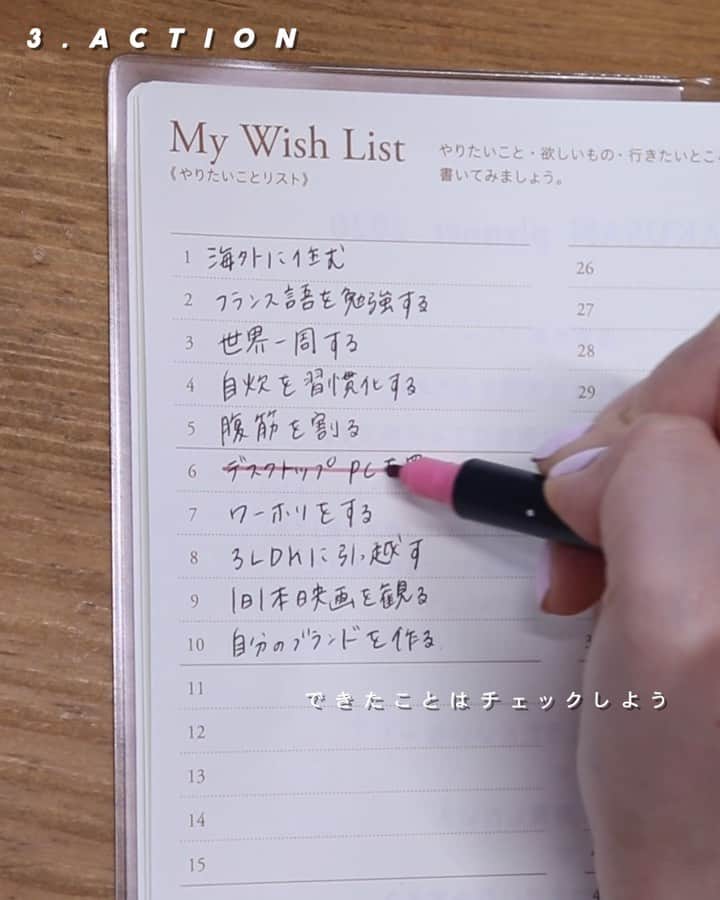 3. ACTION
My Wish List
《やりたいことリスト》
やりたいこと・欲しいもの・行きたいところ
書いてみましょう。
1 海外に住む
2 フランス語を勉強する
3 世界一周する
4 自炊を習慣化する
5 腹筋を割る
6 デスクトップPCを
7 ワーホリをする
8 3LDKに引っ越す
9 1日1本映画を観る
10 自分のブランドを作る
11
12
13
14
15
26
27
28
29
できたことはチェックしよう